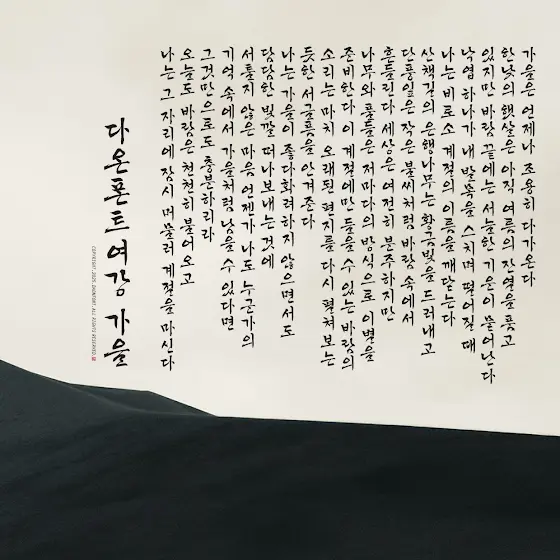 가을은 언제나 조용히 다가온다
한낮의 햇살은 아직 여름의 잔열을 품고
있지만 바람 끝에는 서늘한 기운이 묻어난다
낙엽 하나가 내 발목을 스치며 떨어질 때
나는 비로소 계절의 이름을 깨닫는다
산책길의 은행나무는 황금빛을 드러내고
단풍잎은 작은 불씨처럼 바람 속에서
흔들린다 세상은 여전히 분주하지만
나무와 풀들은 저마다의 방식으로 이별을
준비한다 이 계절에만 들을 수 있는 바람의
소리는 마치 오래된 편지를 다시 펼쳐 보는
듯한 서글픔을 안겨준다
나는 가을이 좋다 화려하지 않으면서도
담담한 빛깔 떠나보내는 것에
서툴지 않은 마음 언젠가 나도 누군가의
기억 속에서 가을처럼 남을 수 있다면
그것만으로도 충분하리라
오늘도 바람은 천천히 불어오고
나는 그 자리에 잠시 머물러 계절을 마신다
다온폰트 여강 가을
COPYRIGHT. 2025. DAONFONT. ALL RIGHTS RESERVED.